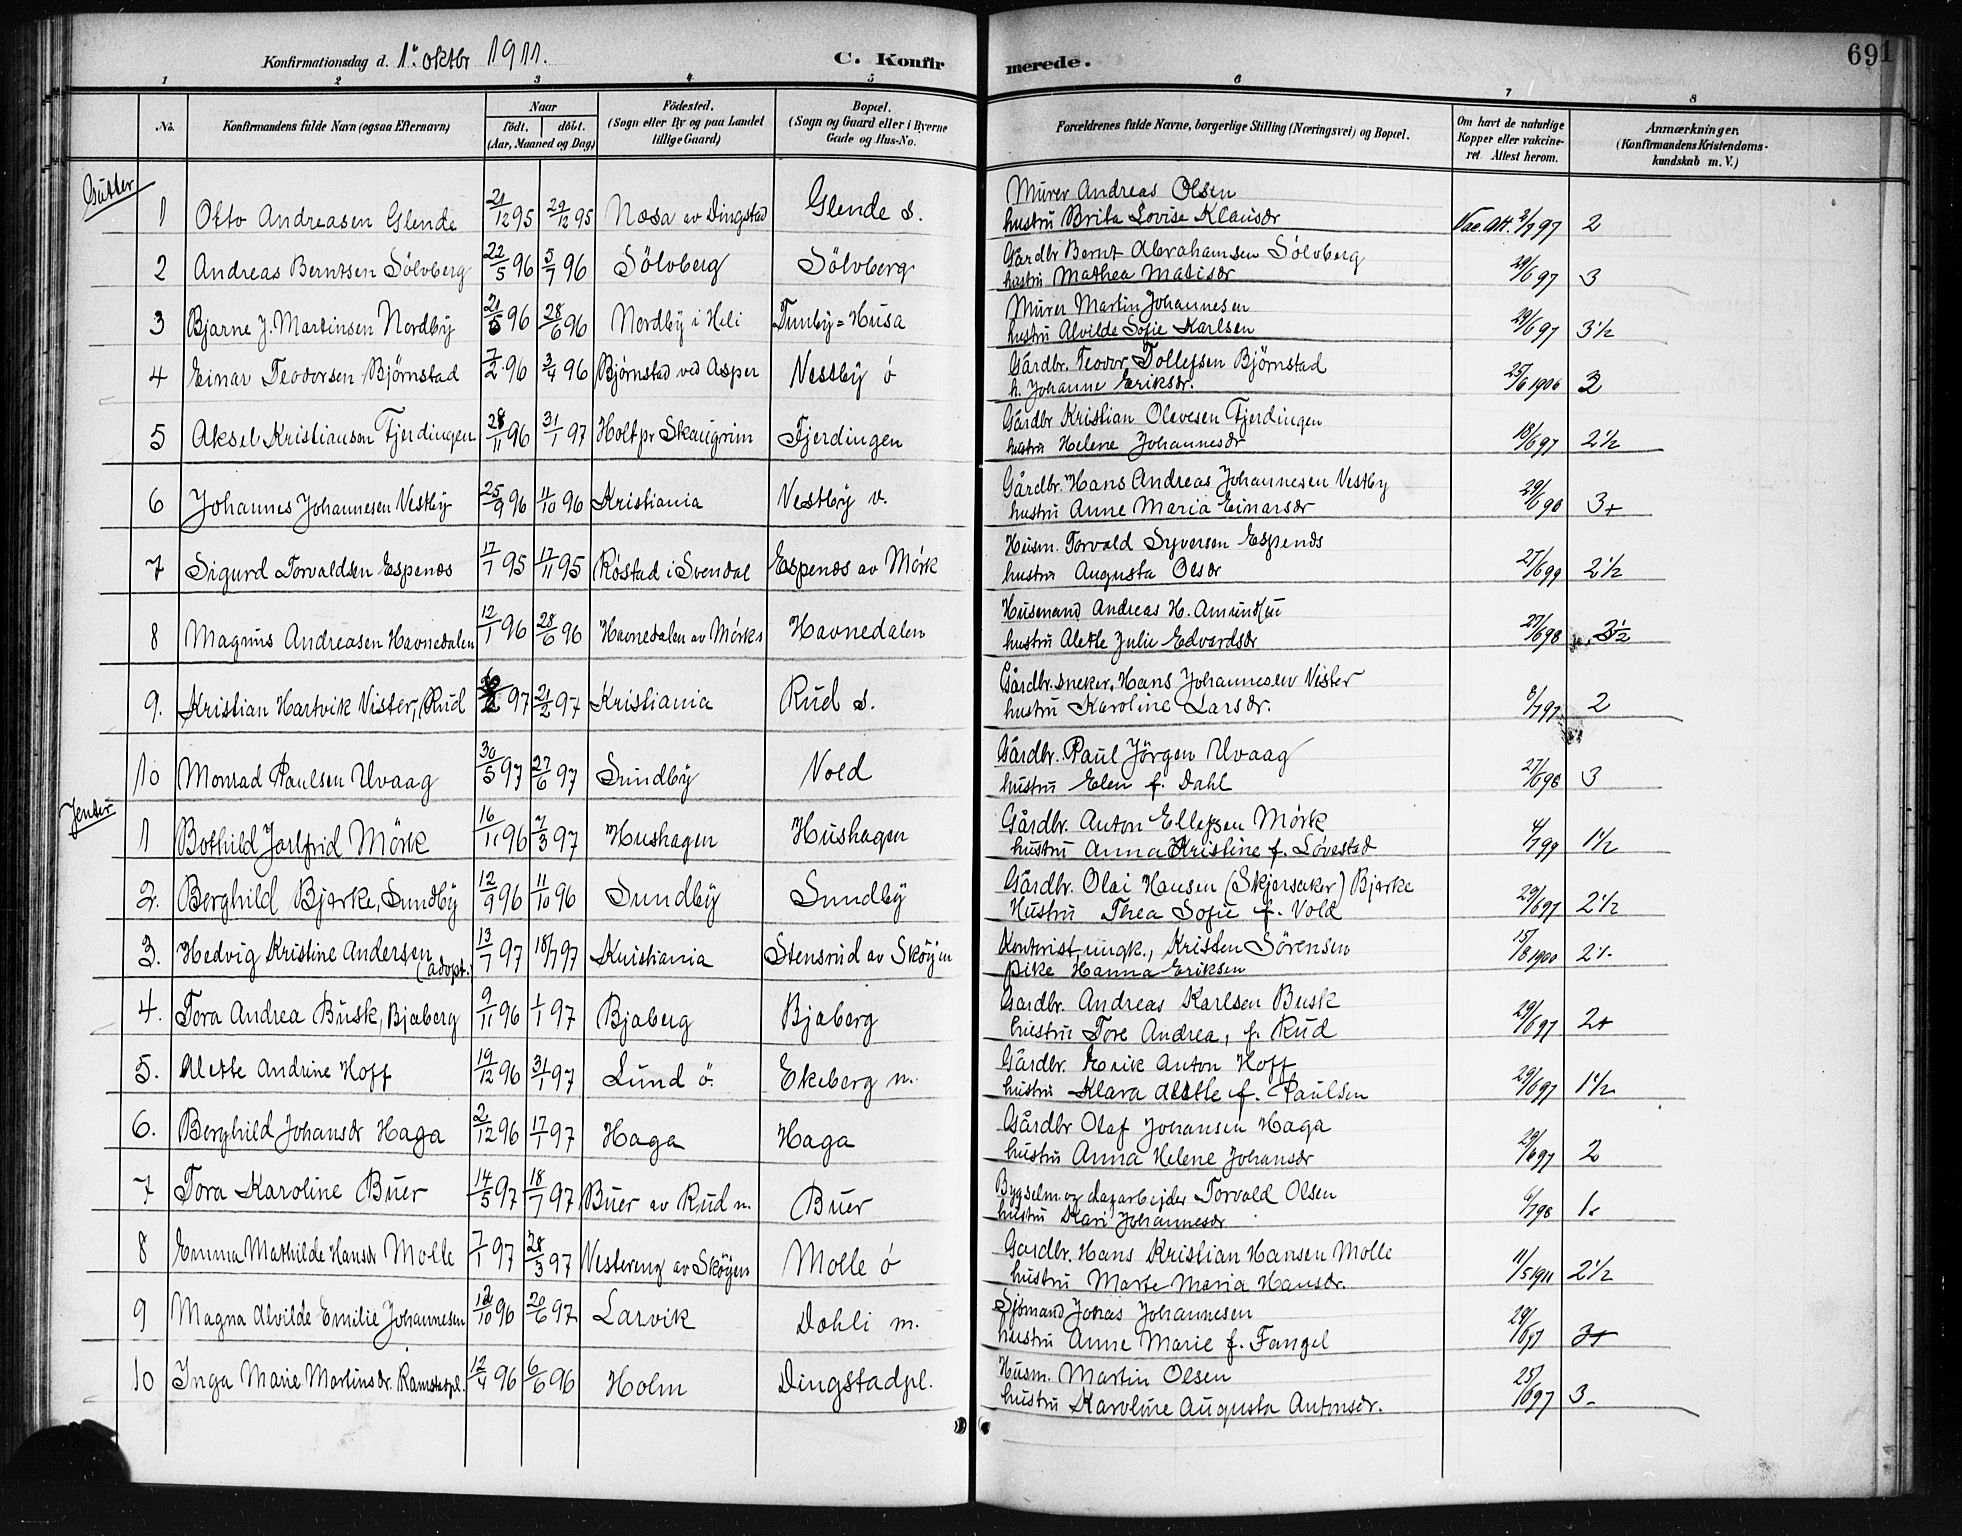 Konfirmationsdag d. 1. oktbr 1911.
C. Konfirmerede.
691
1 2 3 4 5 6 7 8
No.
Konfirmandens fulde Navn (ogsaa Efternavn)
Naar
født. | døbt.
(Aar, Maaned og Dag)
Fødested.
(Sogn eller By og paa Landet
tillige Gaard)
Bopæl.
(Sogn og Gaard eller i Byerne
Gade og Hus-No.
Forældrenes fulde Navne, borgerlige Stilling (Næringsvei) og Bopæl.
Om havt de naturlige
Kopper eller vakcine-
ret. Attest herom.
Anmærkninger.
(Konfirmandens Kristendoms-
kundskab m. V.)
Gutter
1 Otto Andreasen Glende 21/12 95 29/12 95 Næsa av Dingstad Glende s. Murer Andreas Olsen
hustru Brita Lovise Klausdr Vac. Att. 2/7 97 2
2 Andreas Berntsen Sölvberg 22/5 96 5/7 96 Sölvberg Sölvberg Gårdbr Bernt Abrahamsen Sölvberg
hustru Mathea Matisdr 29/6 97 3
3 Bjarne J. Martinsen Nordby 21/5 96 28/6 96 Nordby i Heli Tunby=Husa Murer Martin Johannesen
hustru Alvilde Sofie Karlsen 29/6 97 3 1/2
4 Einar Teodorsen Björnstad 7/2 96 3/4 96 Björnstad ved Asper Nestby ö Gårdbr. Teodor Tollefsen Björnstad
h. Johanne Eriksdr. 25/6 1906 3
5 Aksel Kristiansen Fjerdingen 28/11 96 31/1 97 Holt pr Skaugrim Fjerdingen Gårdbr Kristian Olevesen Fjerdingen
hustru Helene Johannesdr 18/6 97 2 1/2
6 Johannes Johannesen Vestby 25/9 96 11/10 96 Kristiania Vestby v. Gårdbr. Hans Andreas Johannesen Vestby
hustru Anne Maria Einarsdr 29/6 98 3+
7 Sigurd Torvaldsen Espenæs 17/7 95 17/11 95 Röstad i Svendal Espenæs av Mörk Husm. Torvald Syversen Espenæs
hustru Augusta Olsdr 27/6 99 2 1/2
8 Magnus Andreasen Havnedalen 12/1 96 28/6 96 Havnedalen av Mörk s Havnedalen Husmand Andreas H. Amundsen
hustru Alette Julie Edvardsdr 27/6 98 3 1/2
9. Kristian Hartvik Vister, Rud 97 21/2 97 Kristiania Rud s. Gårdbr. sneker, Hans Johannesen Vister
hustru Karoline Larsdr. 8/7 97 2
10 Monrad Paulsen Uvaag 30/5 97 27/6 97 Sundby Vold Gårdbr. Paul Jörgen Uvaag
hustru Elen f. Dahl 27/6 98 3
Jenter
1 Bothild Jarlfrid Mörk 16/11 96 7/3 97 Hushagen Hushagen Gårdbr. Anton Ellefsen Mörk
hustru Anna Kristine f. Lövestad 4/7 99 1 1/2
2. Berghild Bjerke, Sundby 12/9 96 11/10 96 Sundby Sundby Gårdbr. Olai Hansen (Skjorsaker) Bjerke
Hustru Thea Sofie f. Vold 29/6 97 2 1/2
3. Hedvig Kristine Andersen (adopt. 13/7 97 18/7 97 Kristiania Stensrud av Sköyen Kontorist, ungk., Kristen Sörensen
pike Hanna Eriksen 15/8 1900 2 1/-
4. Tora Andrea Busk, Bjaberg 9/11 96 1/1 97 Bjaberg Bjaberg Gardbr. Andreas Karlsen Busk
hustru Tore Andrea, f. Rud 29/6 97 2+
5. Alette Andrine Hoff 19/12 96 31/1 97 Lund ö. Ekeberg n. Gårdbr. Erik Anton Hoff
hustru Klara Alette f. Paulsen 29/6 97 1 1/2
6. Berghild Johansdr Haga 2/12 96 17/1 97 Haga Haga Gårdbr Olaf Johansen Haga
hustru Anna Helene Johansdr 29/6 97 2
7 Tora Karoline Buer 14/5 97 18/7 97 Buer av Rud n. Buer Bygselm. og dagarbejder Torvald Olsen
hustru Kari Johannesdr 6/7 98 1-
8 Emma Mathilde Hansdr Molle 7/1 97 28/3 97 Vestereng av Sköyen Molle ö Gardbr. Hans Kristian Hansen Molle
hustru Marte Maria Hansdr. 11/5 1911 2 1/2
9 Magna Alvilde Emilie Johannesen 12/10 96 20/6 97 Larvik Dahli m. Sjömand Jonas Johannesen
hustru Anne Marie f. Fangel 29/6 97 3+
10 Inga Marie Martinsdr. Ramstadpl. 12/4 96 6/6 96 Holm Dingstadpl. Husm. Martin Olsen
hustru Karoline Augusta Antonsdr. 25/6 97 3-